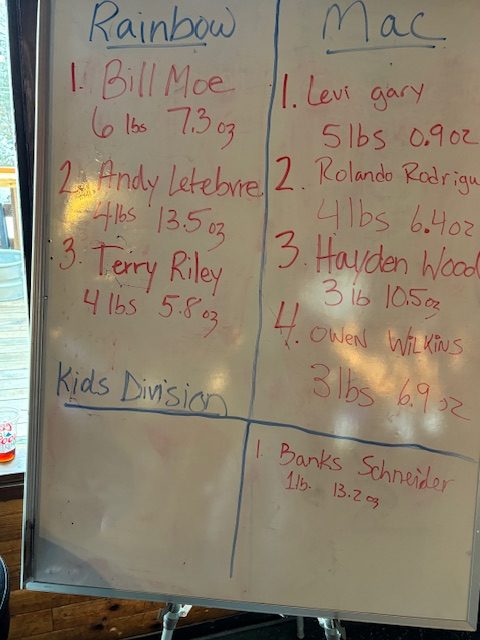 Rainbow
1. Bill Moe
6 lbs 7.3 oz
2. Andy Lefebvre
4 lbs 13.5 oz
3. Terry Riley
4 lbs 5.8 oz
Mac
1. Levi gary
5 lbs 0.9 oz
2. Rolando Rodrigu
4 lbs 6.4 oz
3. Hayden Wood
3 lb 10.5 oz
4. Owen Wilkins
3 lbs 6.9 oz
Kids Division
1. Banks Schneider
1 lb. 13.2 oz